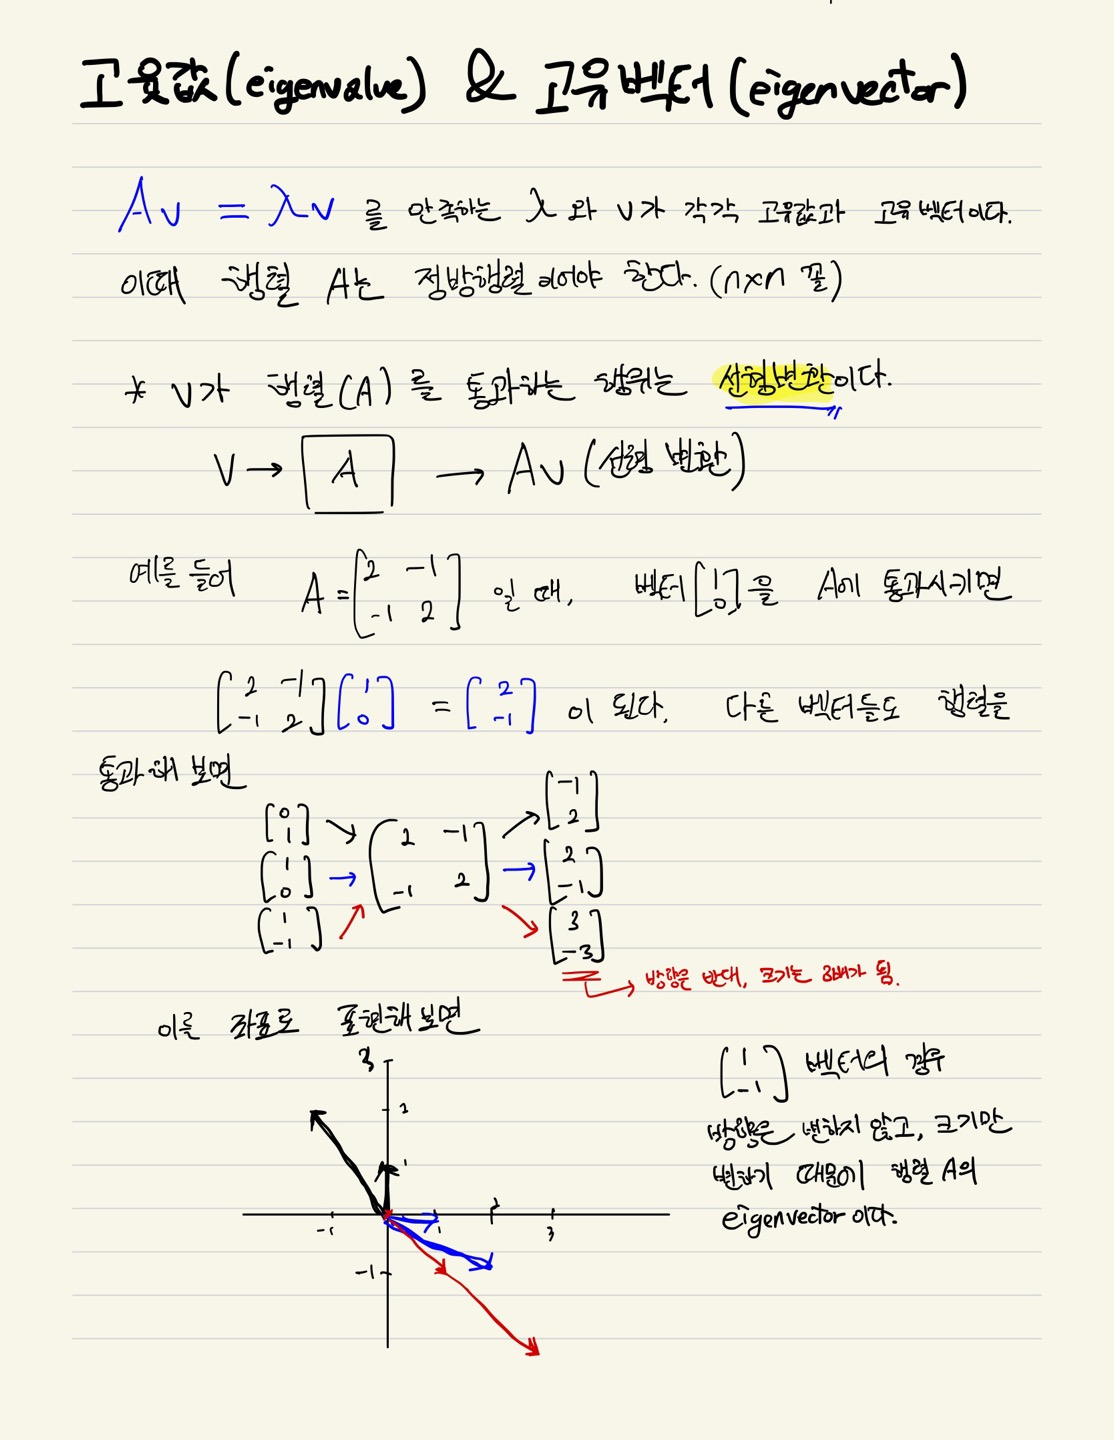 고윳값(eigenvalue) & 고유벡터(eigenvector)
Av = λv 를 만족하는 λ와 v가 각각 고윳값과 고유벡터이다.
이때 행렬 A는 정방행렬이어야 한다. (n×n 꼴)
* v가 행렬(A)를 통과하는 행위는 선형변환이다.
V → A → Av (선형 변환)
예를 들어 A = [2 -1
-1 2] 일 때, 벡터 [1
0]을 A에 통과시키면
[2 -1
-1 2] [1
0] = [2
-1] 이 된다. 다른 벡터들도 행렬을
통과해 보면
[0
1] → [2 -1
-1 2] → [-1
2]
[1
0] → → [2
-1]
[1
-1] → → [3
-3]
→ 방향은 반대, 크기는 3배가 됨.
이를 좌표로 표현해보면
3
2
1
-1 1 2 3
-1
[1
-1] 벡터의 경우
방향은 변하지 않고, 크기만
변하기 때문에 행렬 A의
eigenvector이다.